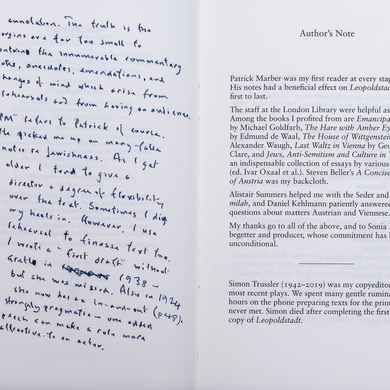 annotation. The truth is the
margins are far too small to
contain the innumerable commentary
notes, anecdotes, amendations, and
changes of mind which arise from
rehearsals and from having an audience.
"PM" refers to Patrick of course.
He picked me up on many
notes on Jewishness. As I get
older I tend to give a
director a degree of flexibility
over the text. Sometimes I dig
my heels in. However, I use
rehearsal to finesse text too.
I wrote a "first draft" without
Gretl in 1938 –
but she was missed. Also in 1924
she now has an in-and-out (p45).
Strongly pragmatic – one added
speech can make a role more
attractive to an actor.
Author's Note
Patrick Marber was my first reader at every stag
His notes had a beneficial effect on Leopoldsta
first to last.
The staff at the London Library were helpful as
Among the books I profited from are Emancipa
by Michael Goldfarb, The Hare with Amber Ey
by Edmund de Waal, The House of Wittgenstein
Alexander Waugh, Last Waltz in Vienna by Geo
Clare, and Jews, Anti-Semitism and Culture in V
an indispensable collection of essays by various
(ed. Ivar Oxaal et al.). Steven Beller's A Concise
of Austria was my backcloth.
Alistair Summers helped me with the Seder and
milah, and Daniel Kehlmann patiently answered
questions about matters Austrian and Viennese.
My thanks go to all of the above, and to Sonia
begetter and producer, whose commitment has
unconditional.
Simon Trussler (1942–2019) was my copyeditor
most recent plays. We spent many gentle rumina
hours on the phone preparing texts for the print
never met. Simon died after completing the first
copy of Leopoldstadt.